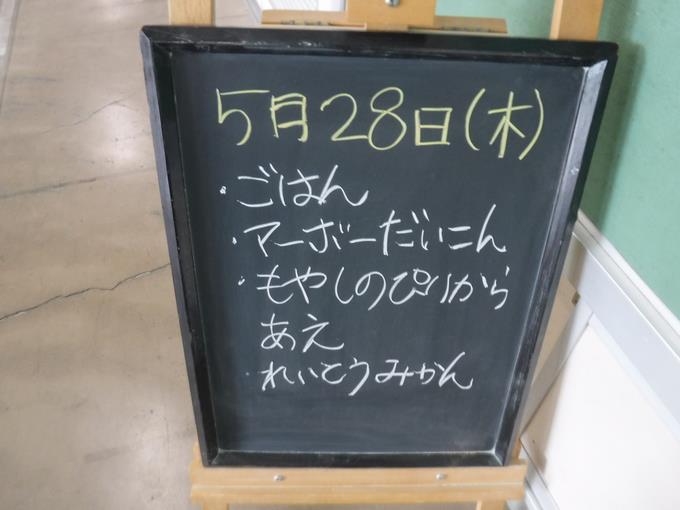 5月28日(木)
・ごはん
・マーボーだいこん
・もやしのぴりから
あえ
・れいとうみかん